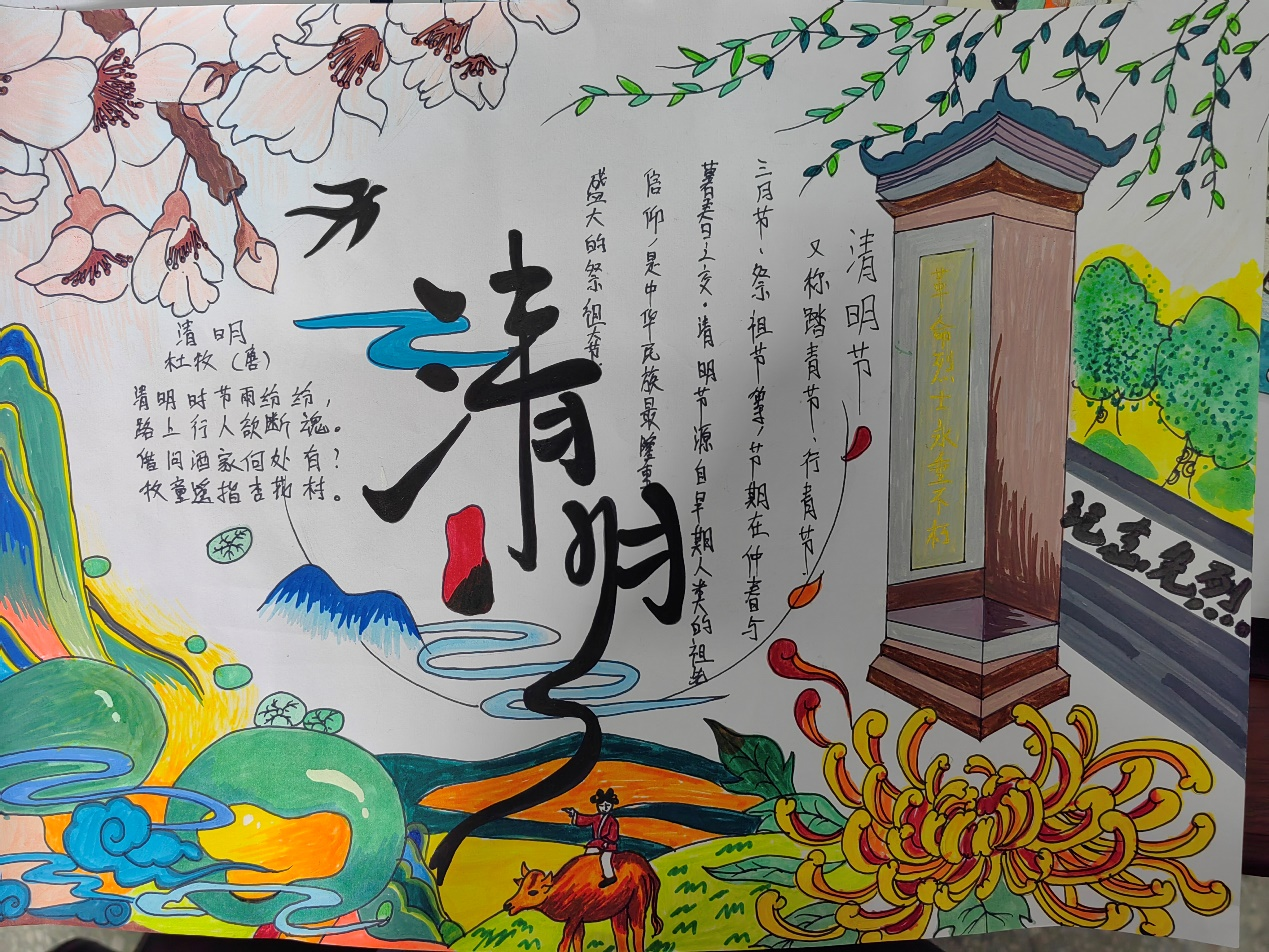 清明
杜牧（唐）
清明时节雨纷纷，
路上行人欲断魂。
借问酒家何处有？
牧童遥指杏花村。
清明
清明节
又称踏青节、行青节、
三月节、祭祖节等，节期在仲春与
暮春之交。清明节源自早期人类的祖先
信仰，是中华民族最隆重
盛大的祭祖大节。
革命烈士永垂不朽
纪念先烈...